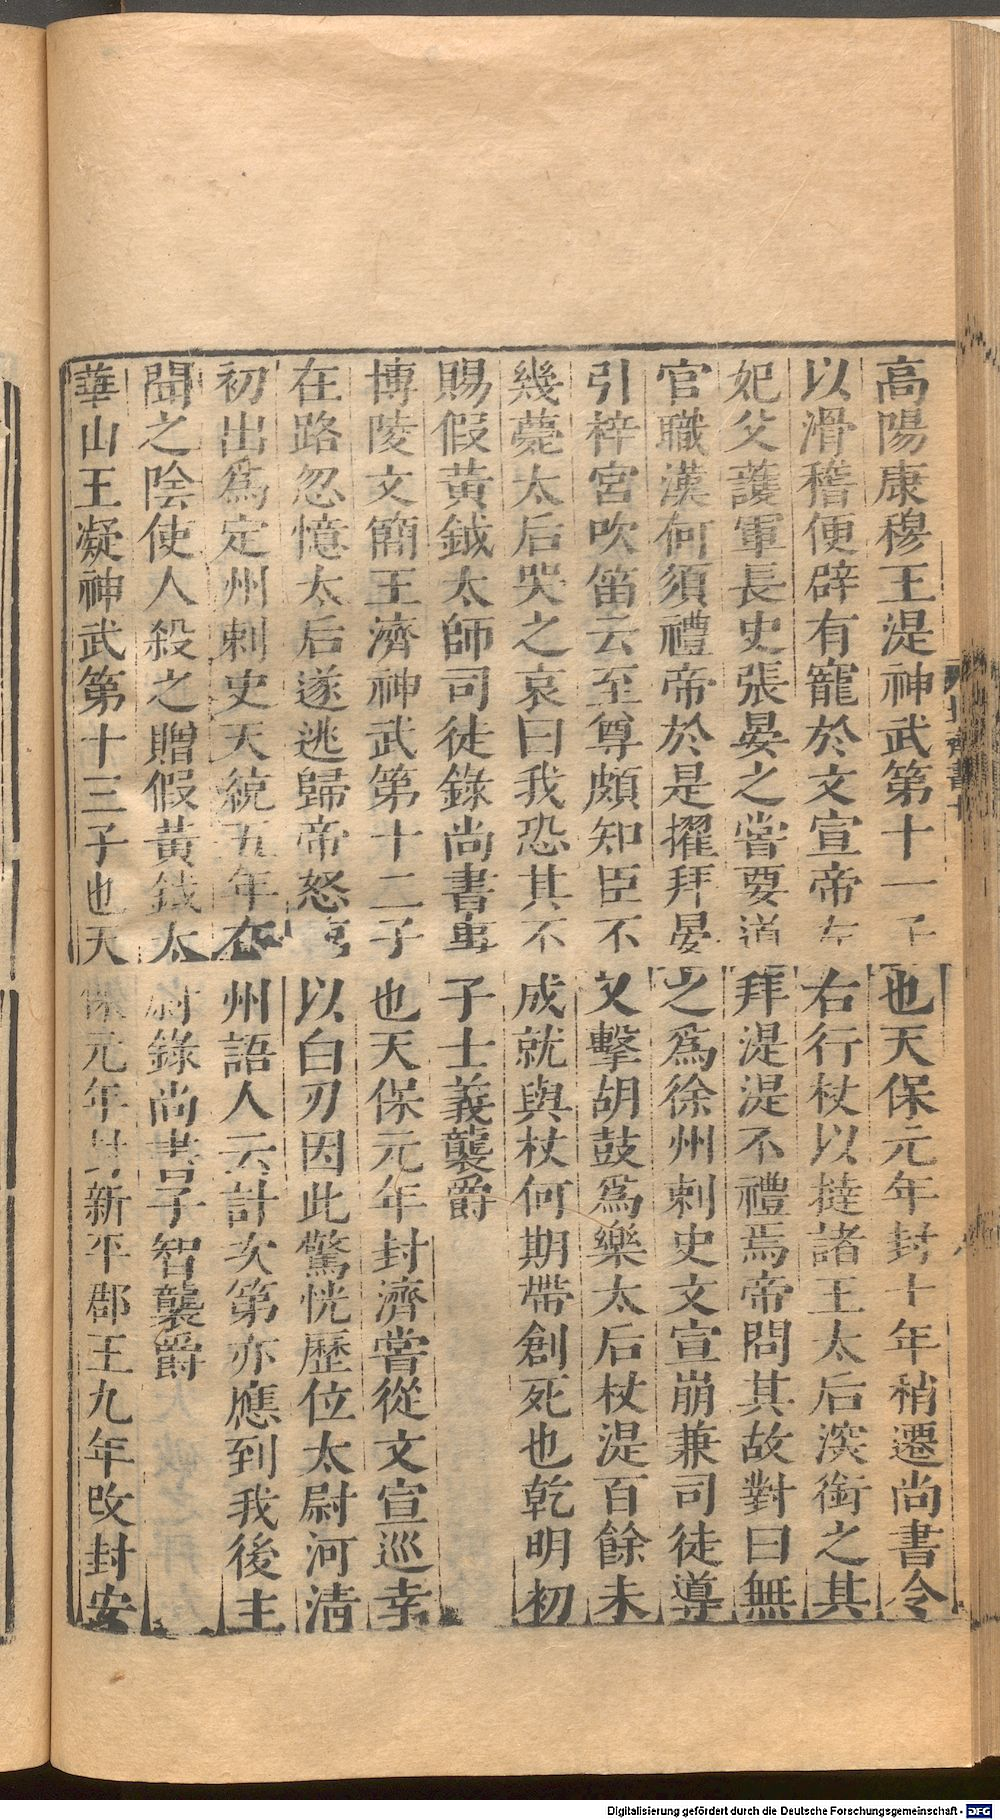 高陽康穆王湜神武第十一子也天保元年封十年稍遷尚書令
以滑稽便辟有寵於文宣帝左右行杖以撻諸王太后深銜之其
妃父護軍長史張晏之嘗要道拜湜湜不禮焉帝問其故對曰無
官職漢何須禮帝於是擢拜晏之爲徐州刺史文宣崩兼司徒導
引梓宮吹笛云至尊頗知臣不又擊胡鼓爲樂太后杖湜百餘未
幾薨太后哭之哀曰我恐其不成就與杖何期帶創死也乾明初
賜假黃鉞太師司徒錄尚書事子士義襲爵
博陵文簡王濟神武第十二子也天保元年封濟嘗從文宣巡幸
在路忽憶太后遂逃歸帝怒臨以白刃因此驚恍歷位太尉河清
初出爲定州刺史天統五年在州語人云計次第亦應到我後主
聞之陰使人殺之贈假黃鉞太尉錄尚書子智襲爵
華山王凝神武第十三子也天保元年封新平郡王九年改封安
Digitalisierung gefördert durch die Deutsche Forschungsgemeinschaft - DFG